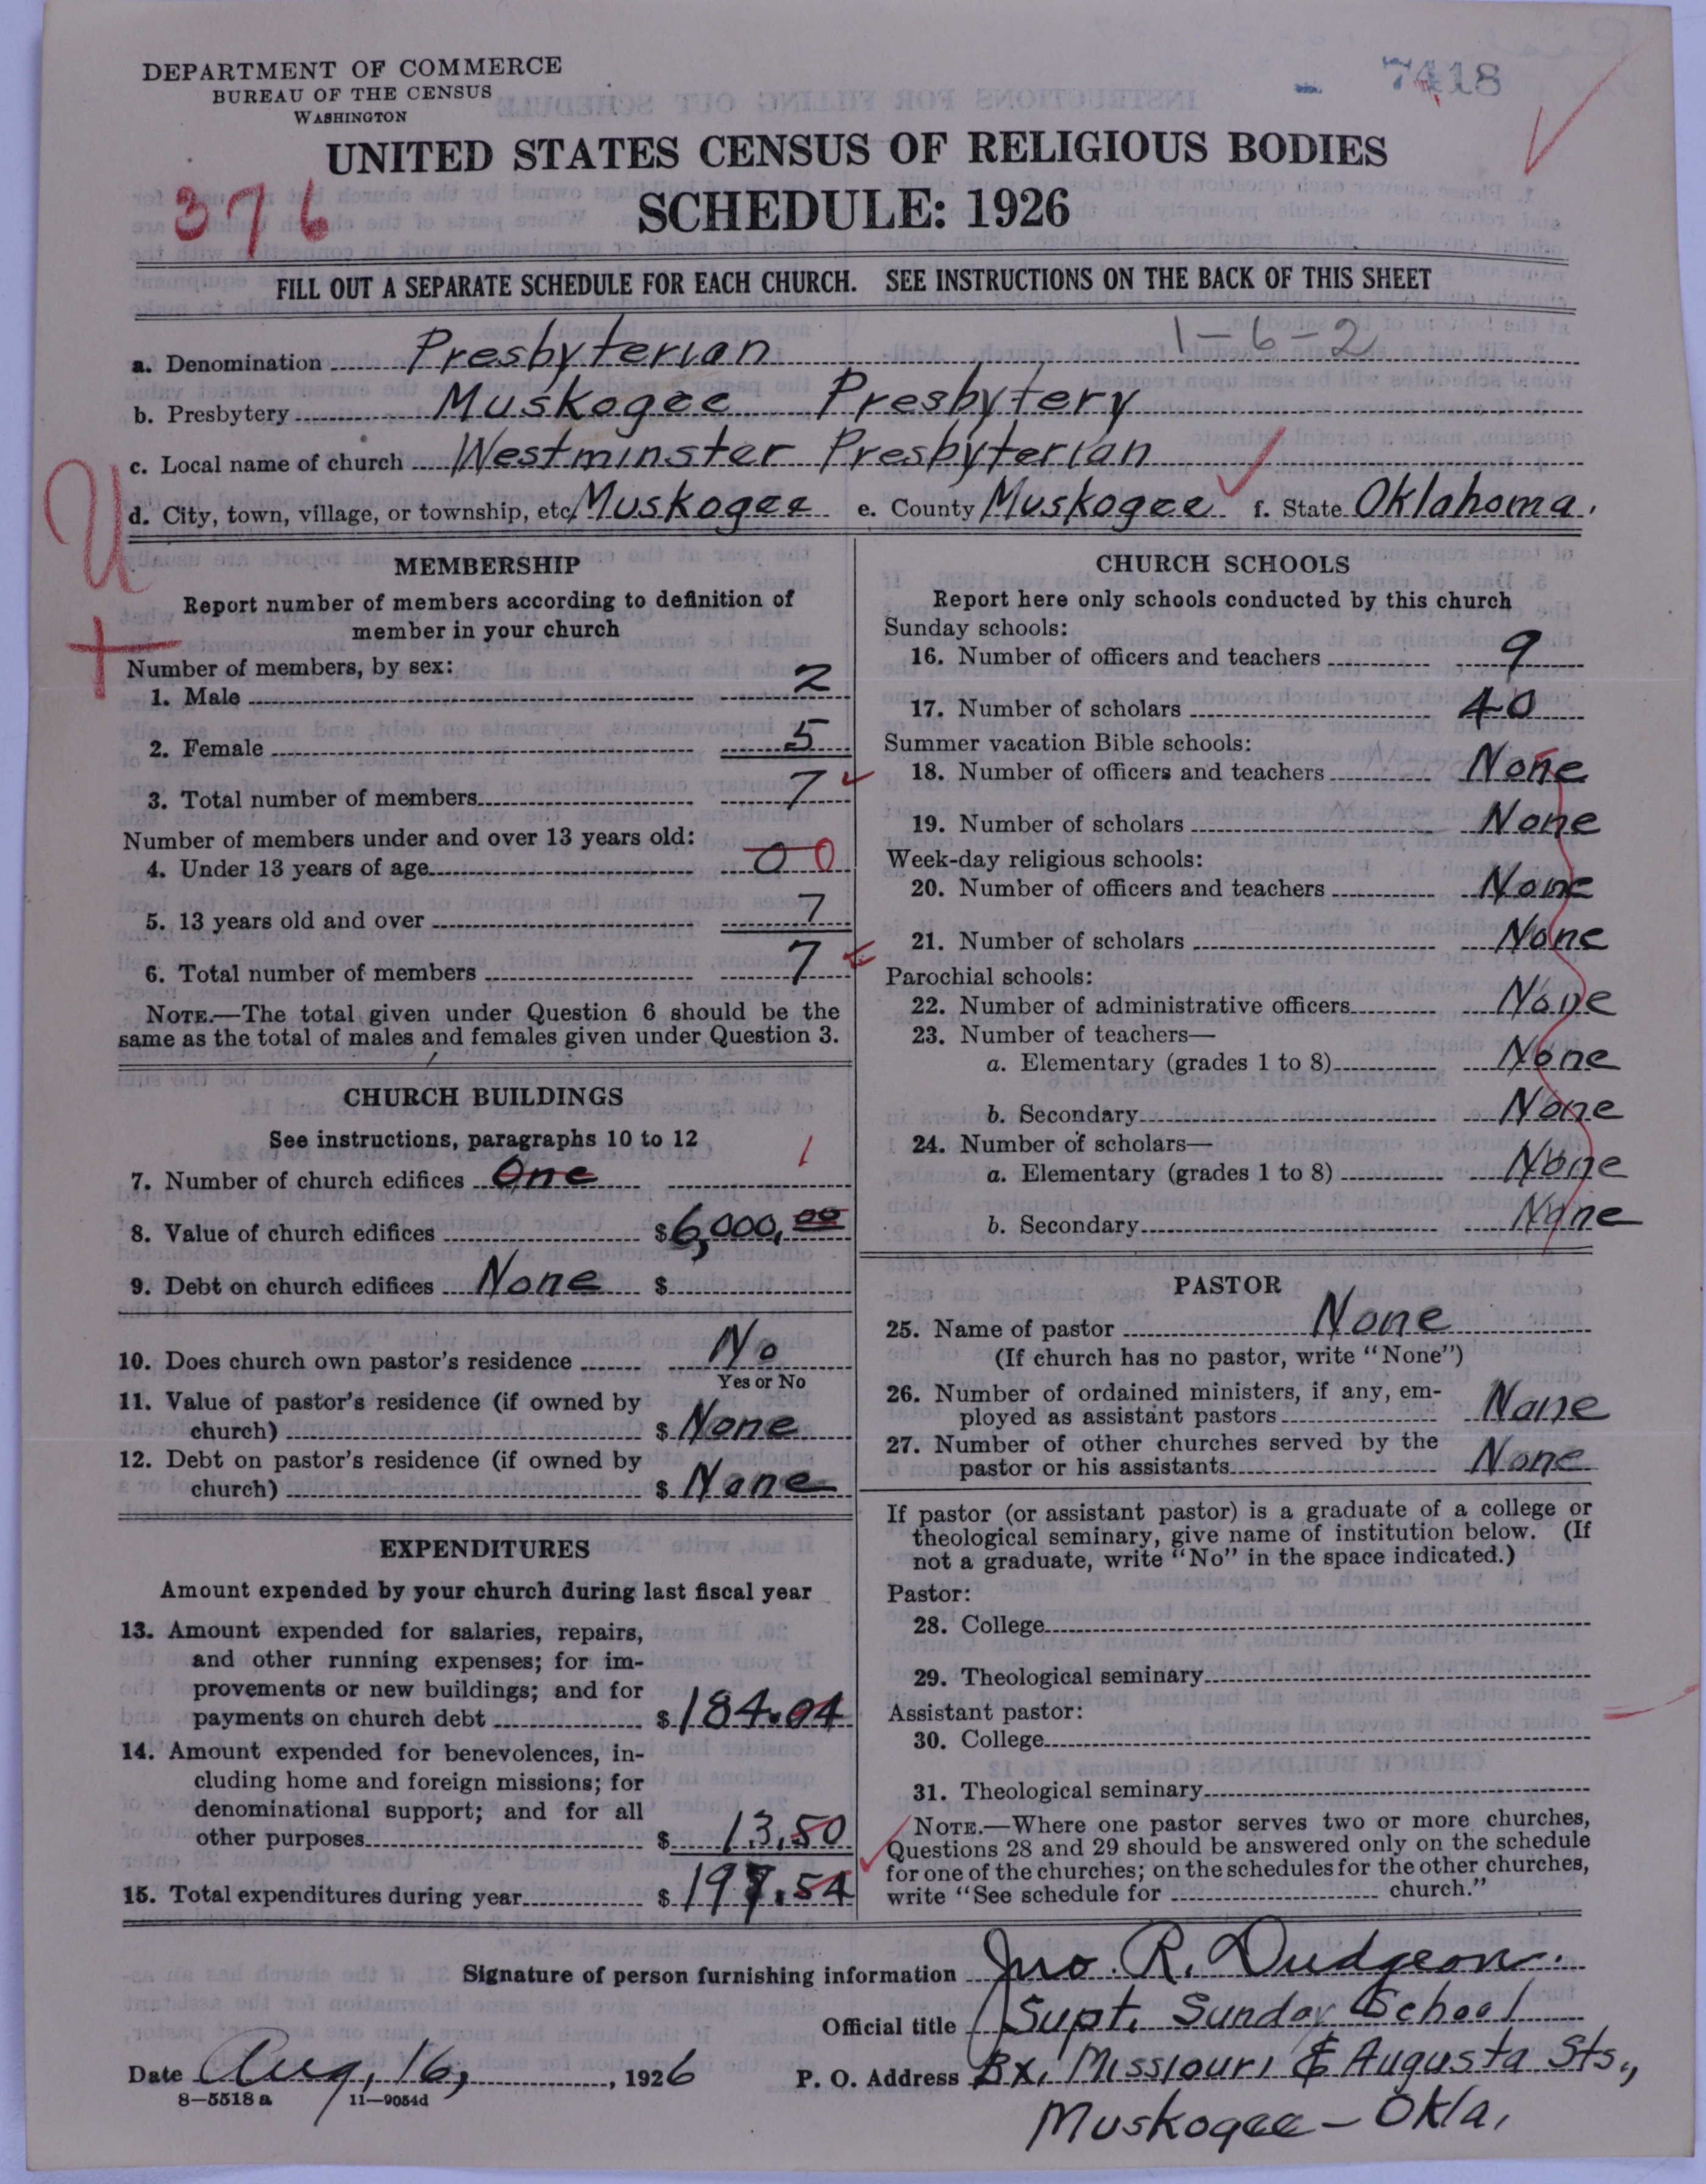 DEPARTMENT OF COMMERCE
BUREAU OF THE CENSUS
WASHINGTON
7418
UNITED STATES CENSUS OF RELIGIOUS BODIES
SCHEDULE: 1926
376
FILL OUT A SEPARATE SCHEDULE FOR EACH CHURCH. SEE INSTRUCTIONS ON THE BACK OF THIS SHEET
1-6-2
a. Denomination Presbyterian
b. Presbytery Muskogee Presbytery
c. Local name of church Westminster Presbyterian
d. City, town, village, or township, etc. Muskogee e. County Muskogee f. State Oklahoma.
U
+
MEMBERSHIP
Report number of members according to definition of
member in your church
Number of members, by sex:
1. Male 2
2. Female 5
3. Total number of members 7
Number of members under and over 13 years old:
4. Under 13 years of age 0 0
5. 13 years old and over 7
6. Total number of members 7
NOTE.—The total given under Question 6 should be the
same as the total of males and females given under Question 3.
CHURCH BUILDINGS
See instructions, paragraphs 10 to 12
7. Number of church edifices One 1
8. Value of church edifices $6,000,00
9. Debt on church edifices None $
10. Does church own pastor's residence No
Yes or No
11. Value of pastor's residence (if owned by
church) $ None
12. Debt on pastor's residence (if owned by
church) $ None
EXPENDITURES
Amount expended by your church during last fiscal year
13. Amount expended for salaries, repairs,
and other running expenses; for im-
provements or new buildings; and for
payments on church debt $184.04
14. Amount expended for benevolences, in-
cluding home and foreign missions; for
denominational support; and for all
other purposes $ 13,50
15. Total expenditures during year $197.54
CHURCH SCHOOLS
Report here only schools conducted by this church
Sunday schools:
16. Number of officers and teachers 9
17. Number of scholars 40
Summer vacation Bible schools:
18. Number of officers and teachers None
19. Number of scholars None
Week-day religious schools:
20. Number of officers and teachers None
21. Number of scholars None
Parochial schools:
22. Number of administrative officers None
23. Number of teachers—
a. Elementary (grades 1 to 8) None
b. Secondary None
24. Number of scholars—
a. Elementary (grades 1 to 8) None
b. Secondary None
PASTOR
25. Name of pastor None
(If church has no pastor, write "None")
26. Number of ordained ministers, if any, em-
ployed as assistant pastors None
27. Number of other churches served by the
pastor or his assistants None
If pastor (or assistant pastor) is a graduate of a college or
theological seminary, give name of institution below. (If
not a graduate, write "No" in the space indicated.)
Pastor:
28. College
29. Theological seminary
Assistant pastor:
30. College
31. Theological seminary
NOTE.—Where one pastor serves two or more churches,
Questions 28 and 29 should be answered only on the schedule
for one of the churches; on the schedules for the other churches,
write "See schedule for church."
Signature of person furnishing information Jno. R. Dudgeon.
Official title Supt. Sunday School
Date Aug, 16, , 1926 P. O. Address Bx, Missiouri & Augusta Sts.,
8—5518 a 11—9054d
Muskogee - Okla,